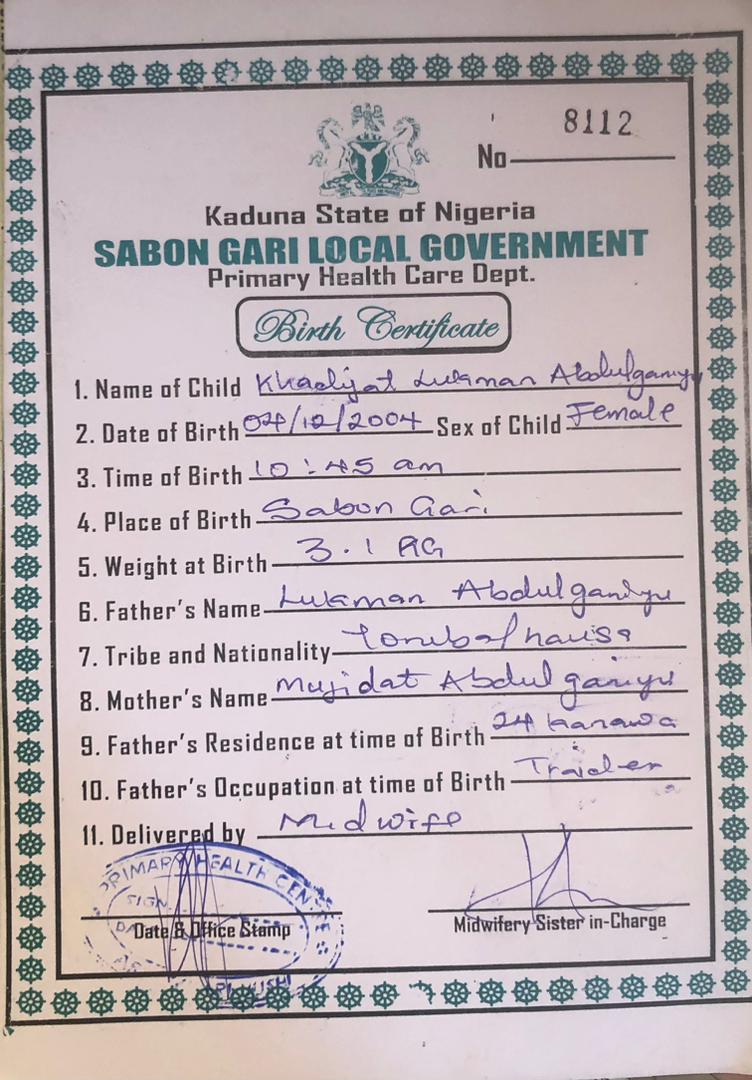 8112
No
Kaduna State of Nigeria
SABON GARI LOCAL GOVERNMENT
Primary Health Care Dept.
Birth Certificate
1. Name of Child Khadijat Lukman Abdulganiyu
2. Date of Birth 04/10/2004 Sex of Child Female
3. Time of Birth 10:45 am
4. Place of Birth Sabon Gari
5. Weight at Birth 3.1 KG
6. Father's Name Lukman Abdulganiyu
7. Tribe and Nationality Yoruba/hausa
8. Mother's Name Mujidat Abdulganiyu
9. Father's Residence at time of Birth 24 Kanawa
10. Father's Occupation at time of Birth Trader
11. Delivered by Midwife
PRIMARY HEALTH
SIGN
Date & Office Stamp
Midwifery Sister in-Charge